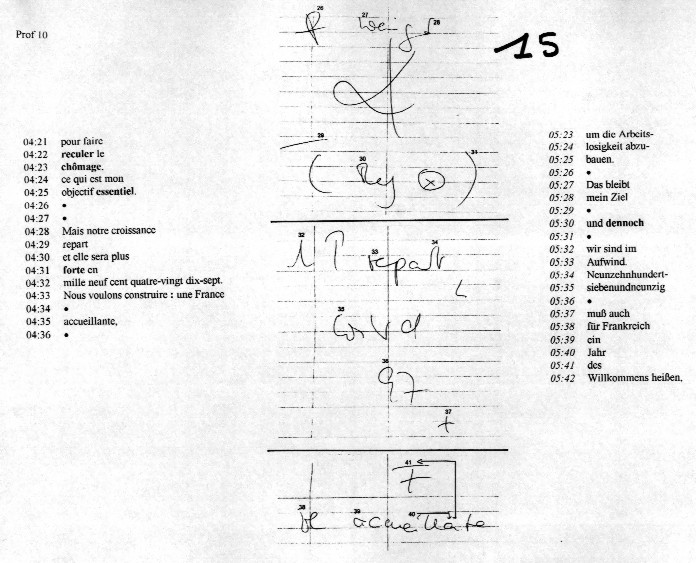 Prof 10
15
04:21 pour faire
04:22 reculer le
04:23 chômage,
04:24 ce qui est mon
04:25 objectif essentiel.
04:26 •
04:27 •
04:28 Mais notre croissance
04:29 repart
04:30 et elle sera plus
04:31 forte en
04:32 mille neuf cent quatre-vingt dix-sept.
04:33 Nous voulons construire : une France
04:34 •
04:35 accueillante,
04:36 •
26 27 28
29
30 31
32 33 34
repart
35
36
97
37
+
41
38 39 40
05:23 um die Arbeits-
05:24 losigkeit abzu-
05:25 bauen.
05:26 •
05:27 Das bleibt
05:28 mein Ziel
05:29 •
05:30 und dennoch
05:31 •
05:32 wir sind im
05:33 Aufwind.
05:34 Neunzehnhundert-
05:35 siebenundneunzig
05:36 •
05:37 muß auch
05:38 für Frankreich
05:39 ein
05:40 Jahr
05:41 des
05:42 Willkommens heißen,